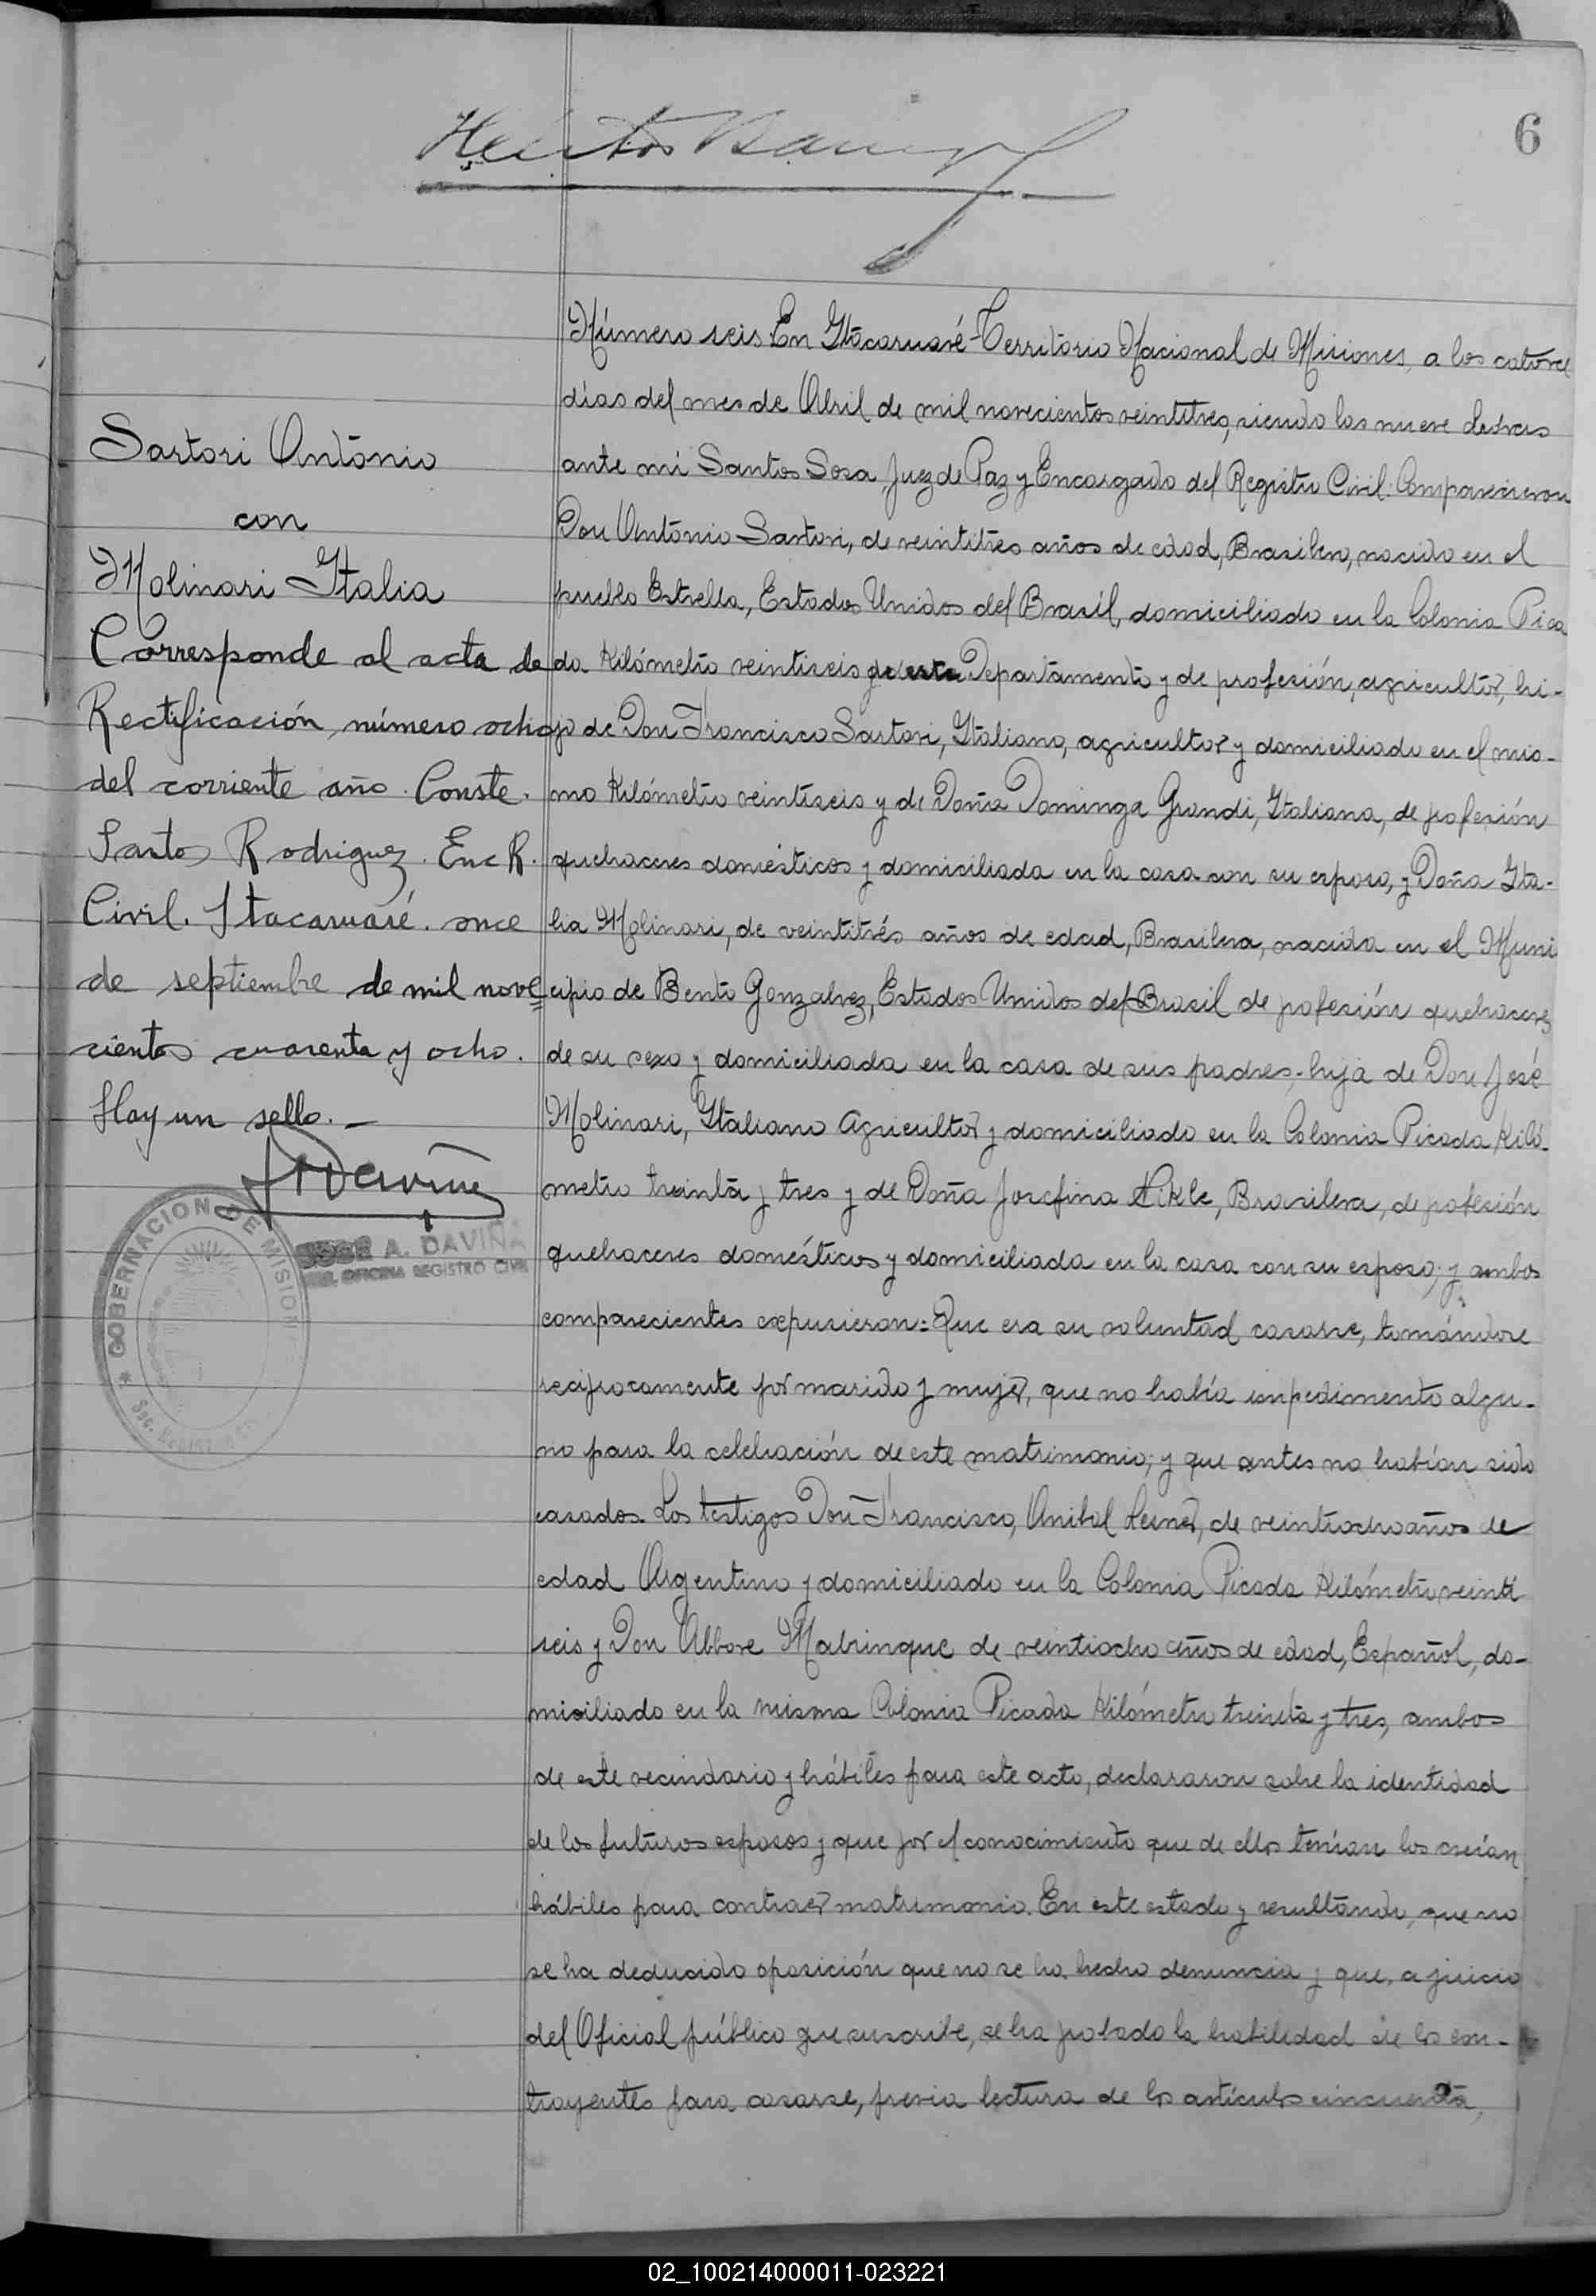 6
Sartori Antonio
con
Molinari Italia
Corresponde al acta de
Rectificación, número ocho
del corriente año. Conste.
Santos Rodriguez. Enc R.
Civil. Itacaruaré. once
de septiembre de mil nove=
cientos cuarenta y ocho.
Hay un sello.—
GOBERNACION DE MISIONE
JOSE A. DAVIÑA
OFICINA REGISTRO CIVIL
Número seis En Itacaruaré-Territorio Nacional de Misiones, a los catorce
días del mes de Abril de mil novecientos veintitres, siendo las nueve
ante mi Santos Sosa, Juez de Paz y Encargado del Registro Civil: Comparecieron
Don Antonio Sartori, de veintitres años de edad, Brasilero, nacido en el
pueblo Estrella, Estados Unidos del Brasil, domiciliado en la Colonia Pica
da Kilómetro veintiseis de este Departamento y de profesión, agricultor, hi-
jo de Don Francisco Sartori, Italiano, agricultor y domiciliado en el mis-
mo Kilómetro veintiseis y de Doña Dominga Grandi, Italiana, de profesión
quehaceres domésticos y domiciliada en la casa con su esposo, y Doña Ita-
lia Molinari, de veintitrés años de edad, Brasilera, nacida en el Muni
cipio de Bento Gonzalvez, Estados Unidos del Brasil de profesión quehaceres
de su sexo y domiciliada en la casa de sus padres, hija de Don José
Molinari, Italiano Agricultor y domiciliado en la Colonia Picada Kiló-
metro treinta y tres y de Doña Josefina Nikle, Brasilera, de profesión
quehaceres domésticos y domiciliada en la casa con su esposo; y ambos
comparecientes expusieron: Que era su voluntad casarse, tomándose
reciprocamente por marido y mujer, que no había impedimento algu-
no para la celebración de este matrimonio; y que antes no habían sido
casados. Los testigos Don Francisco, Anibal de veintiocho años de
edad Argentino y domiciliado en la Colonia Picada Kilómetro veinti
seis y Don Mabrinque de veintiocho años de edad, Español, do-
miciliado en la misma Colonia Picada Kilómetro treinta y tres, ambos
de este vecindario y hábiles para este acto, declararon sobre la identidad
de los futuros esposos y que por el conocimiento que de ellos tenían los creían
hábiles para contraer matrimonio. En este estado y resultando, que no
se ha deducido oposición que no se ha hecho denuncia y que, a juicio
del Oficial público que suscribe, se ha probado la habilidad de los con-
trayentes para casarse, previa lectura de los artículos cincuenta,
02_100214000011-023221